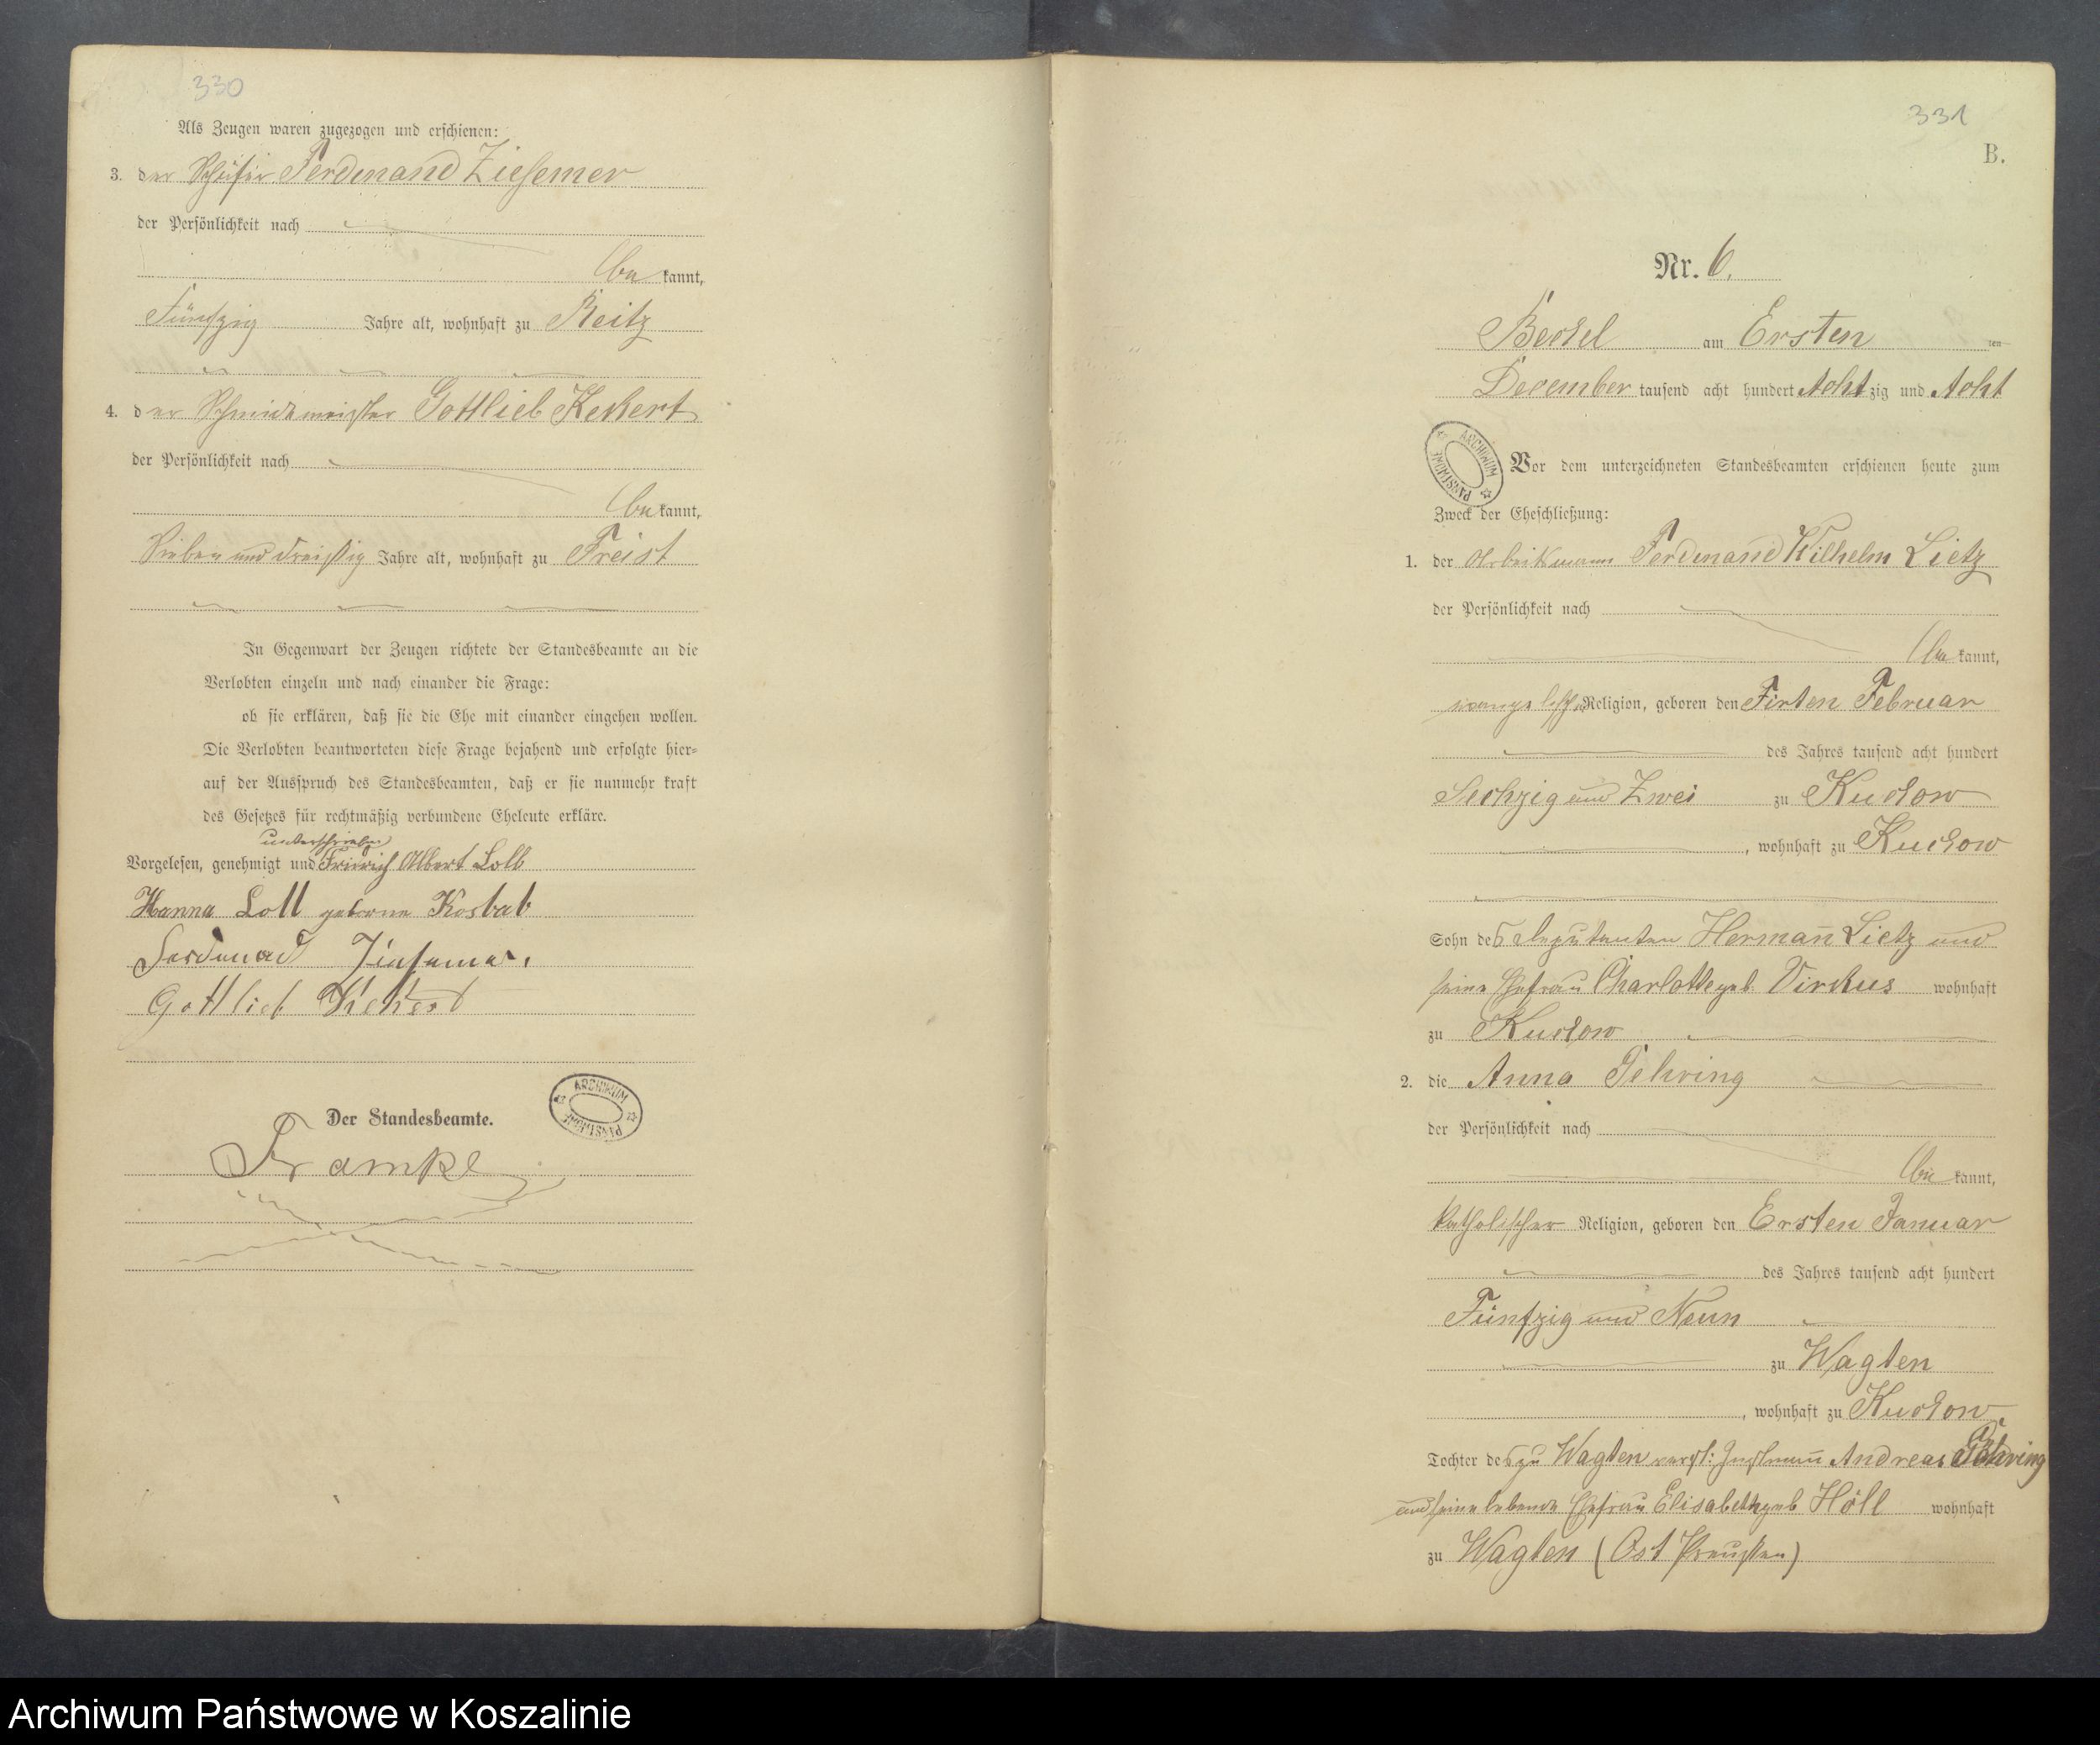 330
Als Zeugen waren zugezogen und erschienen:
3. der Schäfer Ferdinand Ziesemer
der Persönlichkeit nach
be kannt,
Fünfzig Jahre alt, wohnhaft zu Reitz
4. der Schmiedemeister Gottlieb Kekert
der Persönlichkeit nach
be kannt,
Sieben und dreißig Jahre alt, wohnhaft zu Freist
In Gegenwart der Zeugen richtete der Standesbeamte an die
Verlobten einzeln und nach einander die Frage:
ob sie erklären, daß sie die Ehe mit einander eingehen wollen.
Die Verlobten beantworteten diese Frage bejahend und erfolgte hier-
auf der Ausspruch des Standesbeamten, daß er sie nunmehr kraft
des Gesetzes für rechtmäßig verbundene Eheleute erkläre.
unterschrieben
Vorgelesen, genehmigt und Friedrich Albert Loll
Hanna Loll geborne Kosbab
Ferdinand Ziesemer.
Gottlieb Kekert
Der Standesbeamte.
Framke
ARCHIWUM PAŃSTWOWE
331
B.
Nr. 6.
Beckel am Ersten ten
December tausend acht hundert Acht zig und Acht
ARCHIWUM PAŃSTWOWE
Vor dem unterzeichneten Standesbeamten erschienen heute zum
Zweck der Eheschließung:
1. der Arbeitsmann Ferdinand Wilhelm Lietz
der Persönlichkeit nach
be kannt,
evangelischer Religion, geboren den Firten Februar
des Jahres tausend acht hundert
Sechzig und Zwei zu Kuckow
, wohnhaft zu Kuckow
Sohn des Deputanten Hermann Lietz und
seine Ehefrau Charlotte geb. Virchus wohnhaft
zu Kuckow
2. die Anna Fehring
der Persönlichkeit nach
be kannt,
katholischer Religion, geboren den Ersten Januar
des Jahres tausend acht hundert
Fünfzig und Neun
zu Wagten
, wohnhaft zu Kuckow
Tochter des zu Wagten verst: Instmann Andreas Fehring
und seine lebende Ehefrau Elisabeth geb Höll wohnhaft
zu Wagten (Ost Preußen)
Archiwum Państwowe w Koszalinie